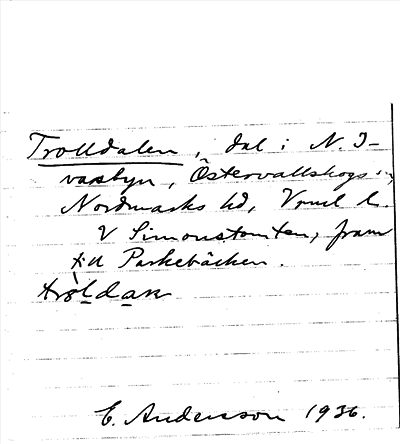 Trolldalen, dal i N. I-
vastbyn, Östervallskogs sn,
Nordmarks hd, Vrml l.
V Simonstomten, fram
till Parkebäcken.
tròldan
E. Andersson 1936.